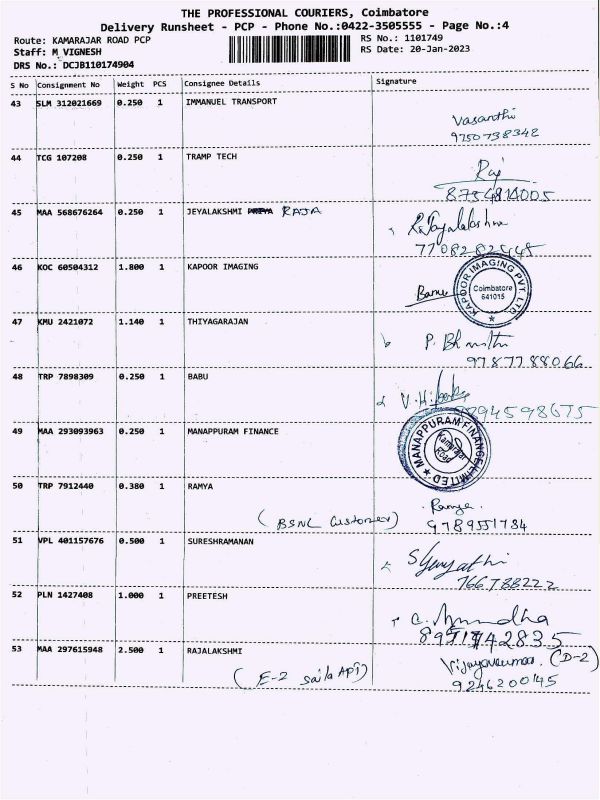 THE PROFESSIONAL COURIERS, Coimbatore
Delivery Runsheet - PCP - Phone No.:0422-3505555 - Page No.:4
Route: KAMARAJAR ROAD PCP
RS No.: 1101749
Staff: M VIGNESH
RS Date: 20-Jan-2023
DRS No.: DCJB110174904
S No Consignment No Weight PCS Consignee Details Signature
43 SLM 312021669 0.250 1 IMMANUEL TRANSPORT
Vasanthi
9750738342
44 TCG 107208 0.250 1 TRAMP TECH
Raj
8754814005
45 MAA 568676264 0.250 1 JEYALAKSHMI PRIYA RAJA
7708282445
46 KOC 60504312 1.800 1 KAPOOR IMAGING
KAPOOR IMAGING PVT. LTD
Coimbatore
641015
47 KMU 2421072 1.140 1 THIYAGARAJAN
9787788066
48 TRP 7898309 0.250 1 BABU
9794598675
49 MAA 293093963 0.250 1 MANAPPURAM FINANCE
MANAPPURAM FINANCE LIMITED
Kamarajar
Road
50 TRP 7912440 0.380 1 RAMYA
(BSNL Customer)
Ramya.
9789551784
51 VPL 401157676 0.500 1 SURESHRAMANAN
766788222
52 PLN 1427408 1.000 1 PREETESH
53 MAA 297615948 2.500 1 RAJALAKSHMI
(E-2 Saila APT)
Vijayakumar. (D-2)
9246200145